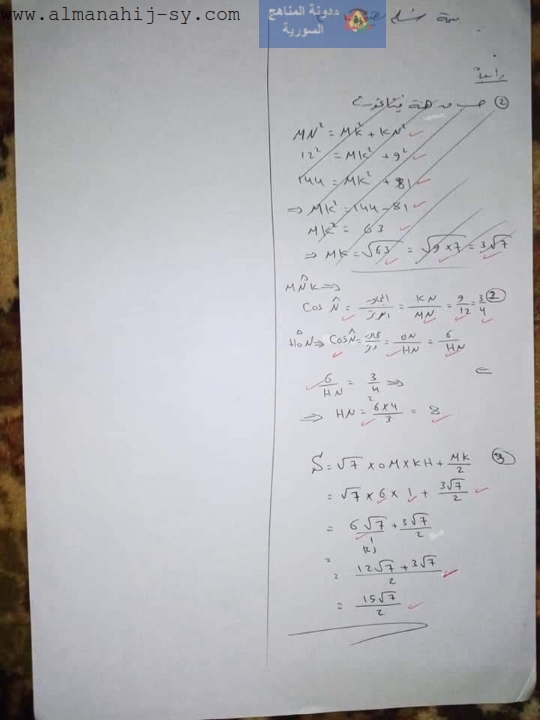 www.almanahij-sy.com
مدونة المناهج
السورية
② حسب فيثاغورث
MN² = MK² + KN²
12² = MK² + 9²
144 = MK² + 81
⇒ MK² = 144 - 81
MK² = 63
⇒ MK = √63 = √9×7 = 3√7
MNK ⇒
②
Cos N̂ = المجاور/الوتر = KN/MN = 9/12 = 3/4
HON ⇒ Cos N̂ = ON/HN = 6/HN
6/HN = 3/4 ⇒
⇒ HN = 6×4/3 = 8
③ S = √7 × OM × KH + MK/2
= √7 × 6 × 1 + 3√7/2
= 6√7/1 + 3√7/2
= 12√7 + 3√7/2
= 15√7/2